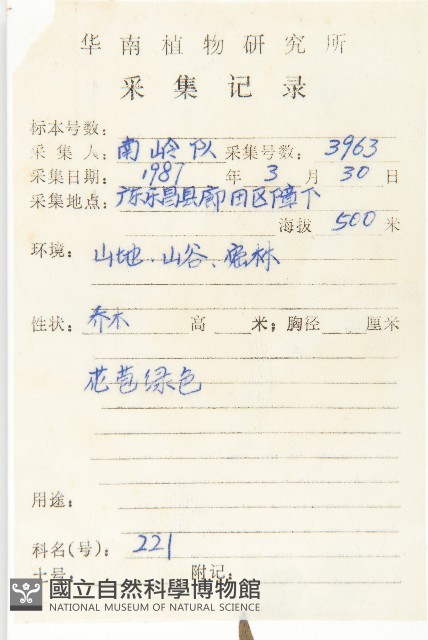 华南植物研究所
采集记录
标本号数：
采集人：南岭队 采集号数：3963
采集日期：1987 年 3 月 30 日
采集地点：广东乐昌县廊田区障下
海拔 500 米
环境：山地、山谷、密林
性状：乔木 高 米；胸径 厘米
花苞绿色
用途：
科名(号)：221
土号 附记：
國立自然科學博物館
NATIONAL MUSEUM OF NATURAL SCIENCE